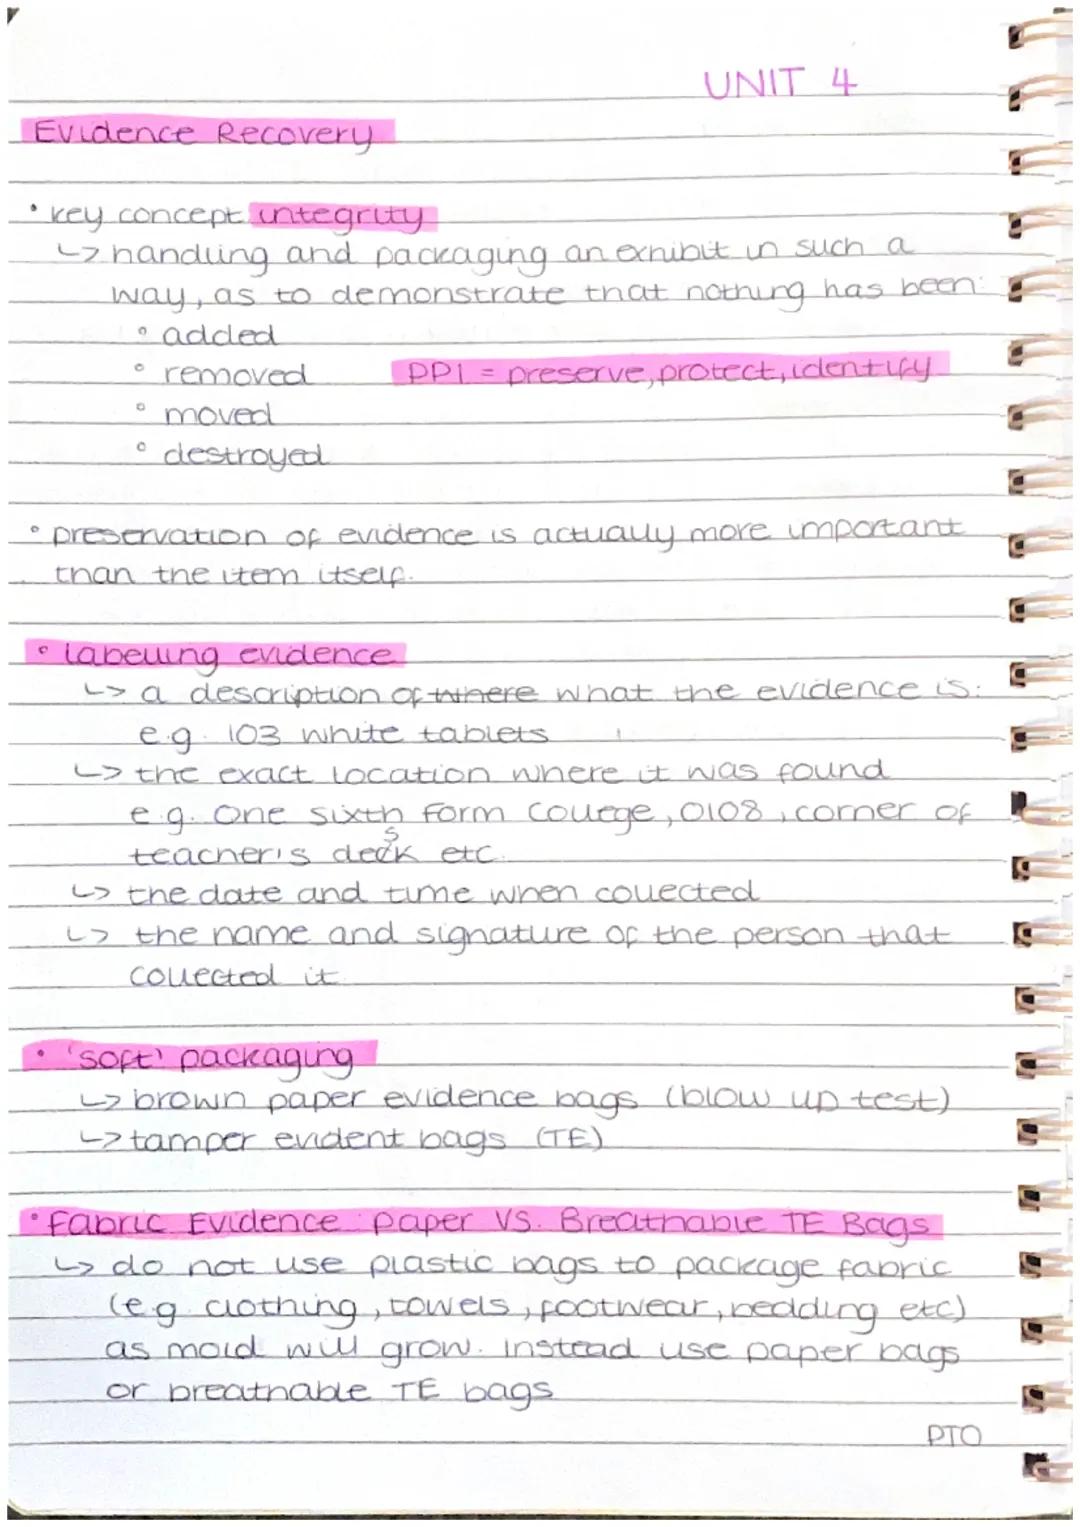 UNIT 4
Evidence Recovery
• key concept integrity
↳ handling and packaging an exhibit in such a
way, as to demonstrate that nothing has been:
° added
° removed PPI = preserve, protect, identify
° moved
° destroyed
• preservation of evidence is actually more important
than the item itself.
• labelling evidence
↳ a description of where what the evidence is:
e.g. 103 white tablets
↳ the exact location where it was found
e.g. One Sixth Form College, 0108, corner of
teacher's desk etc.
↳ the date and time when collected
↳ the name and signature of the person that
collected it
• 'soft' packaging
↳ brown paper evidence bags (blow up test)
↳ tamper evident bags (TE)
• Fabric Evidence paper VS. Breathable TE Bags
↳ do not use plastic bags to package fabric
(e.g. clothing, towels, footwear, bedding etc)
as mold will grow. instead use paper bags
or breathable TE bags
PTO